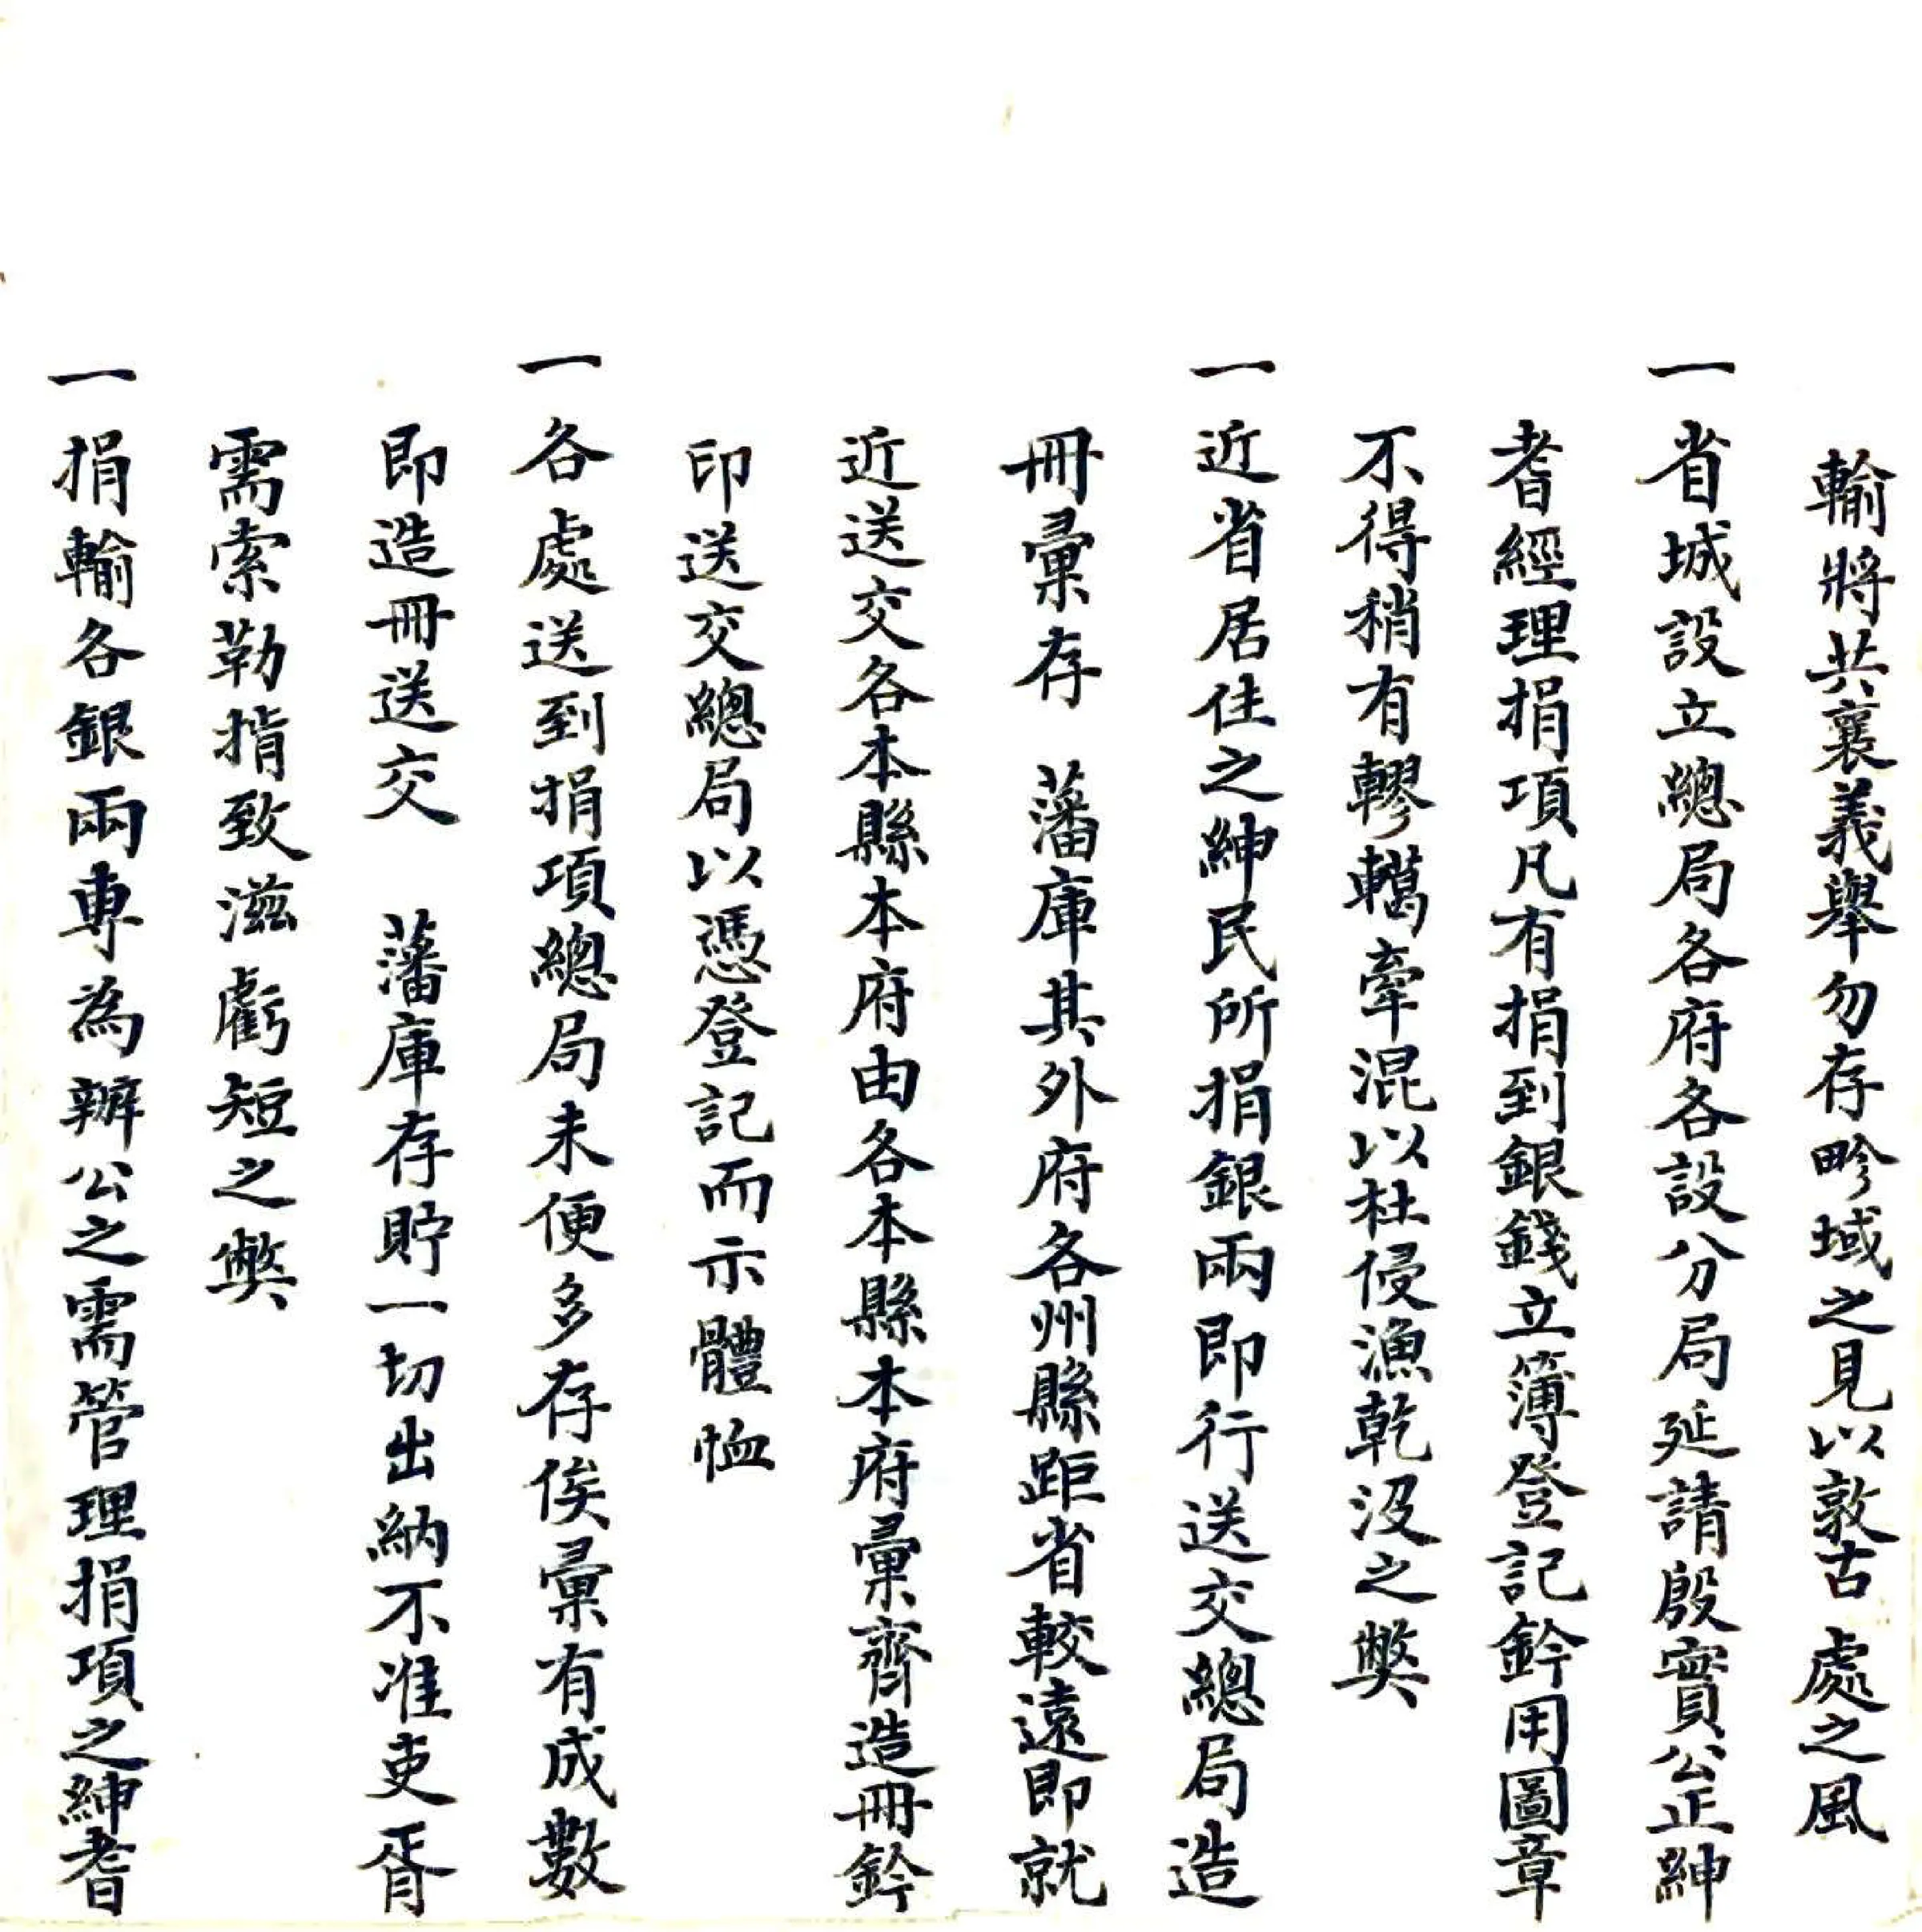 輸將共襄義舉勿存畛域之見以敦古處之風
一省城設立總局各府各設分局延請殷實公正紳
耆經理捐項凡有捐到銀錢立簿登記鈐用圖章
不得稍有轇轕牽混以杜侵漁乾沒之獘
一近省居住之紳民所捐銀兩即行送交總局造
冊彙存 藩庫其外府各州縣距省較遠即就
近送交各本縣本府由各本縣本府彙齊造冊鈐
印送交總局以憑登記而示體恤
一各處送到捐項總局未便多存俟彙有成數
即造冊送交 藩庫存貯一切出納不准吏胥
需索勒掯致滋虧短之獘
一捐輸各銀兩專為辦公之需管理捐項之紳耆